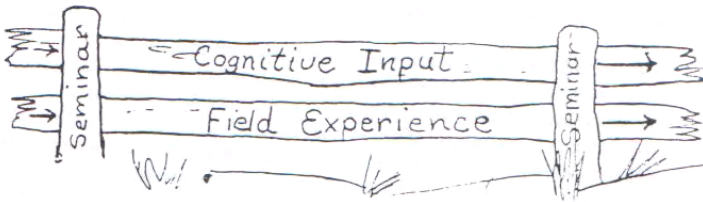 Seminar
Cognitive Input
Field Experience
Seminar